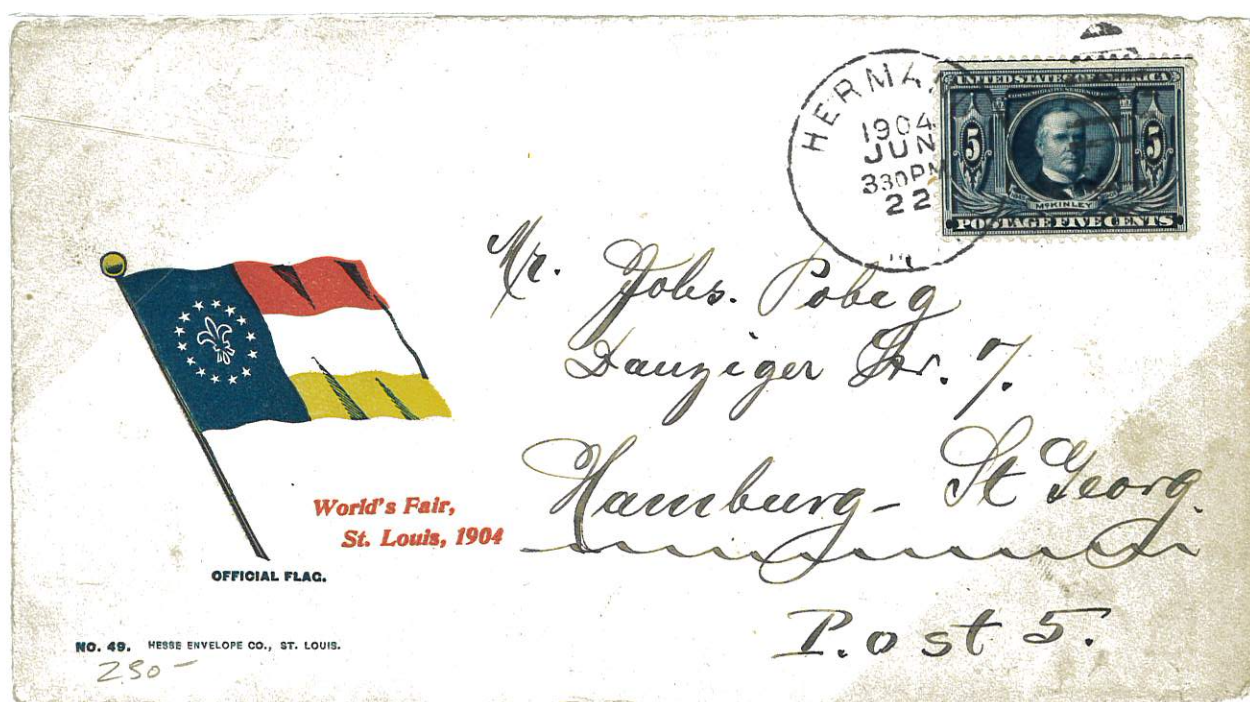 HERMA
1904
JUN
330PM
22
UNITED STATES OF AMERICA
5 5
McKINLEY
POSTAGE FIVE CENTS
Mr. Johs. Pobeg
Danziger Str. 7.
Hamburg - St Georg.
Post 5.
World's Fair,
St. Louis, 1904
OFFICIAL FLAG.
NO. 49. HESSE ENVELOPE CO., ST. LOUIS.
250-